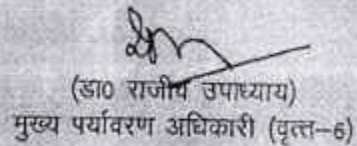 (डा0 राजीव उपाध्याय)
मुख्य पर्यावरण अधिकारी (वृत्त-6)